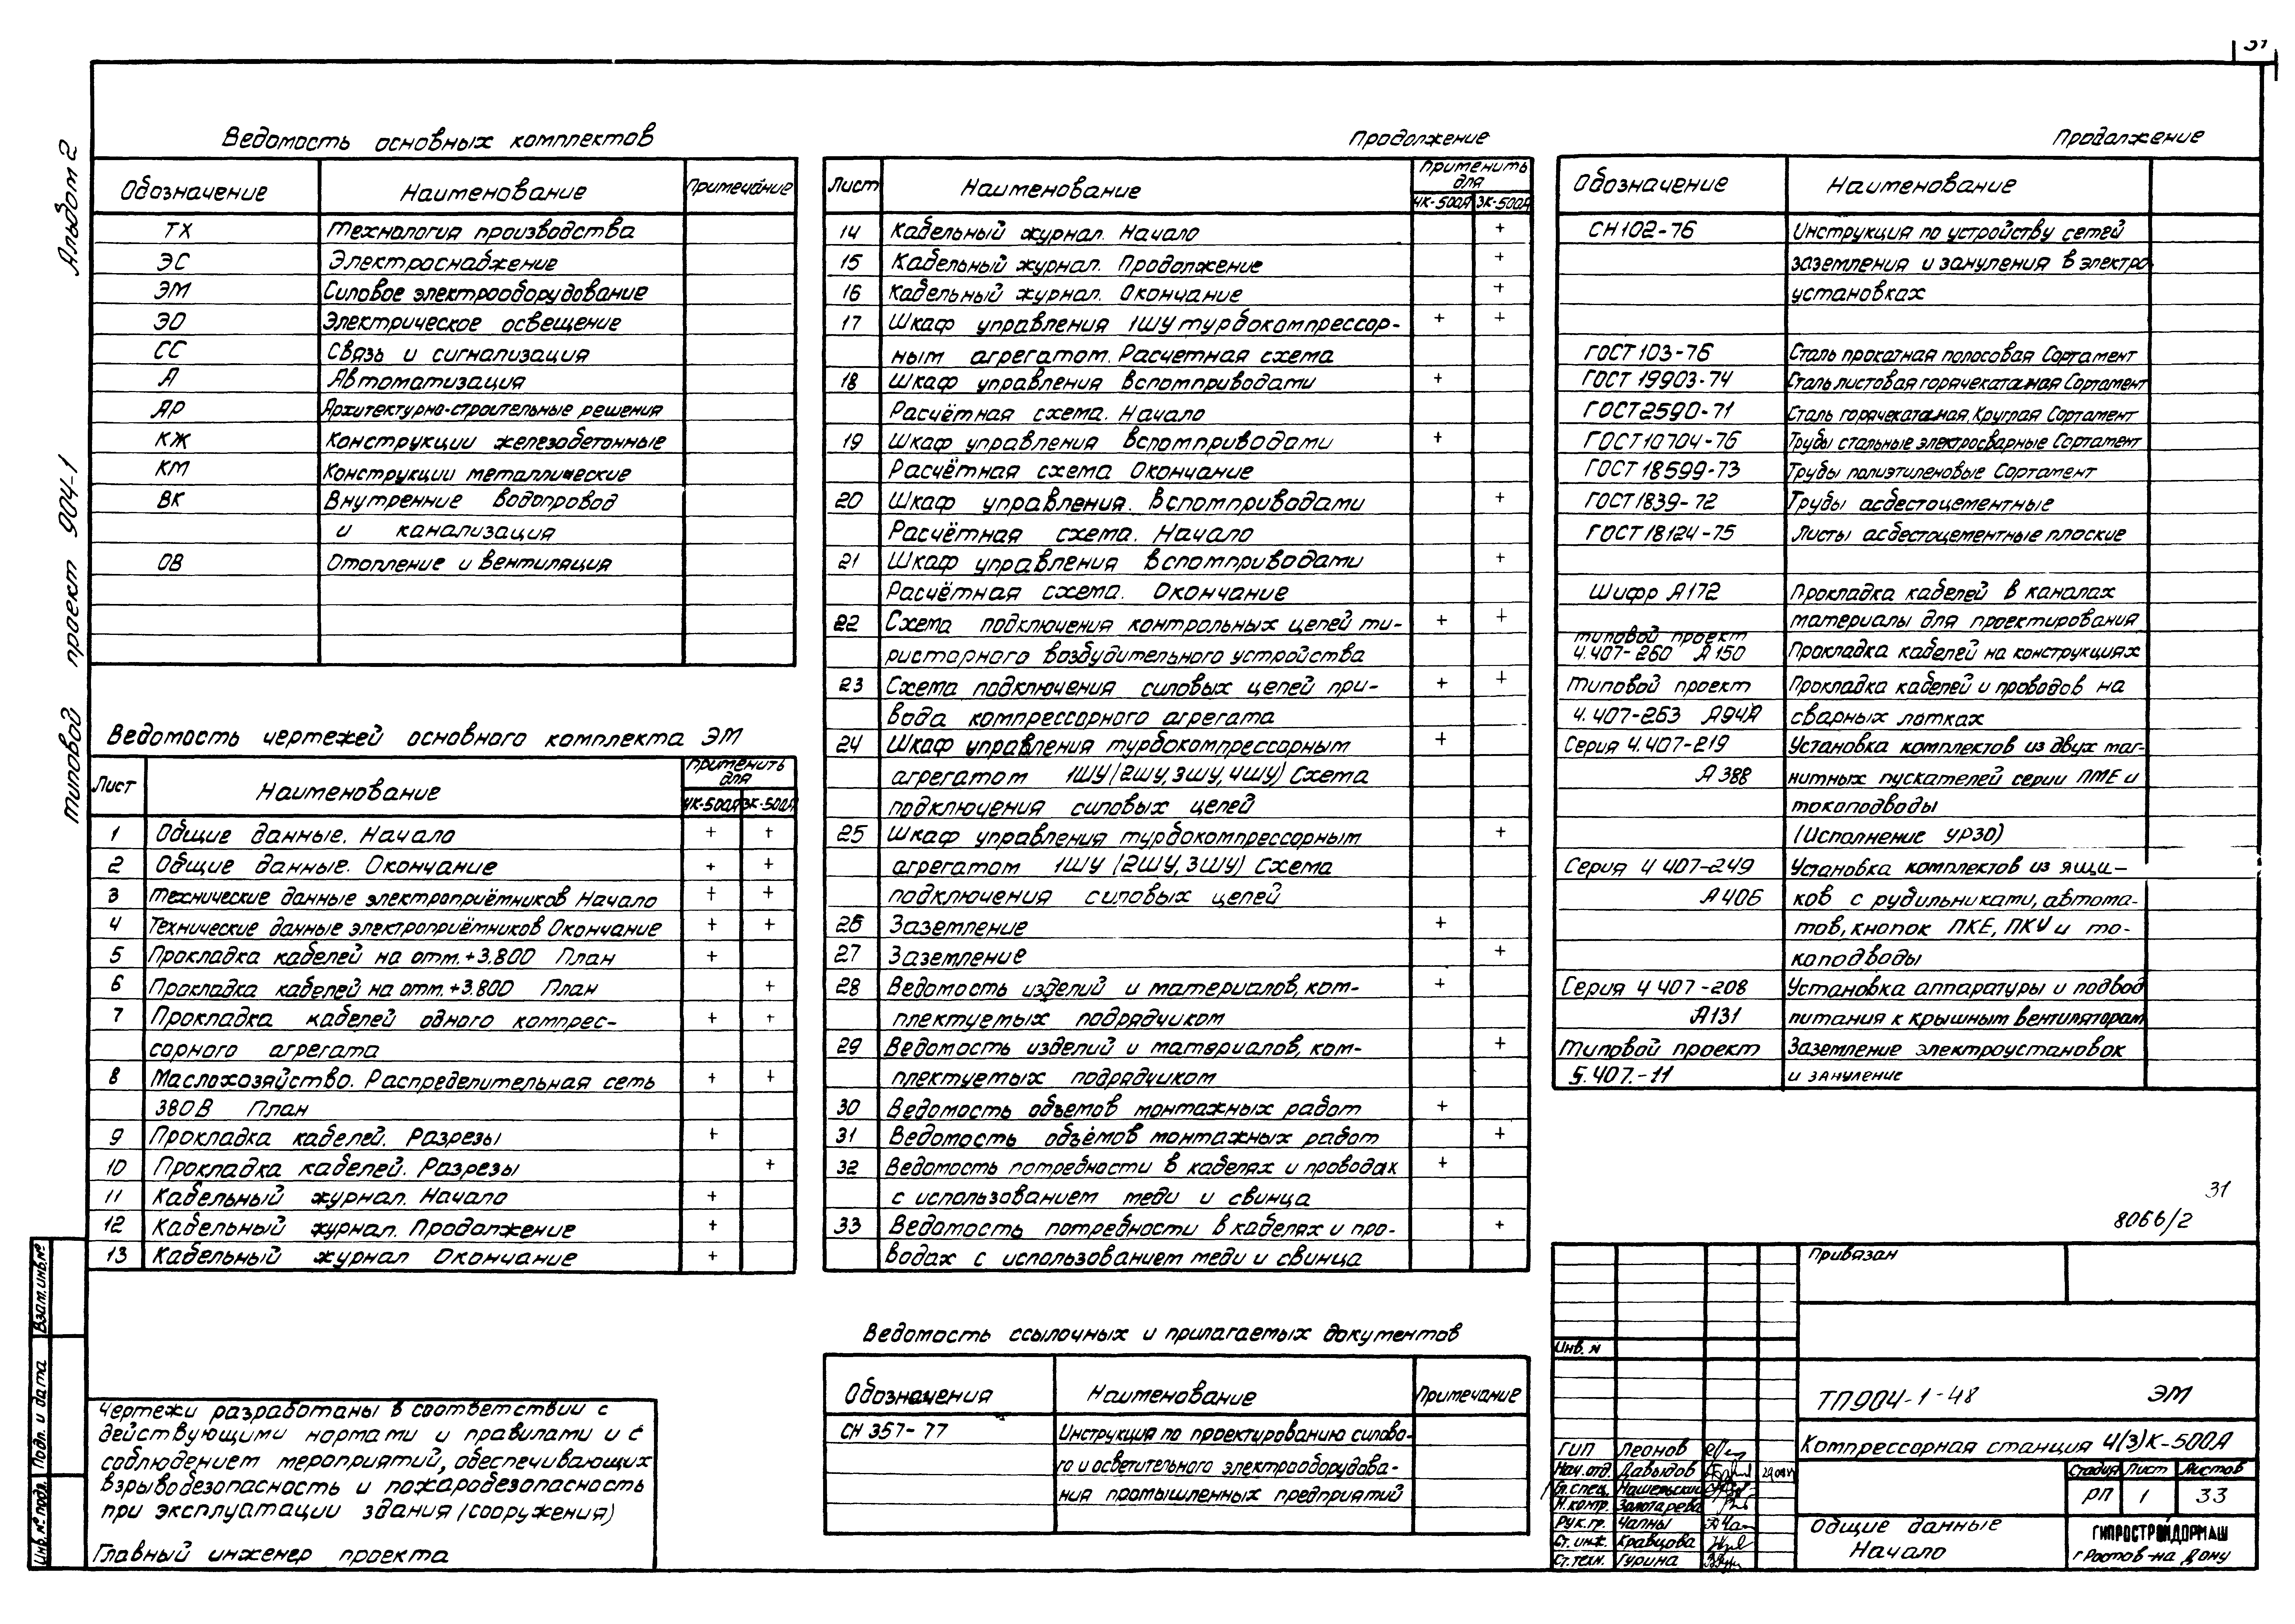 31
Альбом 2
типовой проект 904-1
Ведомость основных комплектов
Обозначение Наименование Примечание
ТХ Технология производства
ЭС Электроснабжение
ЭМ Силовое электрооборудование
ЭО Электрическое освещение
СС Связь и сигнализация
А Автоматизация
АР Архитектурно-строительные решения
КЖ Конструкции железобетонные
КМ Конструкции металлические
ВК Внутренние водопровод
и канализация
ОВ Отопление и вентиляция
Ведомость чертежей основного комплекта ЭМ
Лист Наименование Применить для
4К-500А 3К-500А
1 Общие данные. Начало + +
2 Общие данные. Окончание + +
3 Технические данные электроприёмников Начало + +
4 Технические данные электроприёмников Окончание + +
5 Прокладка кабелей на отм.+3.800 План +
6 Прокладка кабелей на отм.+3.800 План +
7 Прокладка кабелей одного компрес- + +
сорного агрегата
8 Маслохозяйство. Распределительная сеть + +
380В План
9 Прокладка кабелей. Разрезы +
10 Прокладка кабелей. Разрезы +
11 Кабельный журнал. Начало +
12 Кабельный журнал. Продолжение +
13 Кабельный журнал Окончание +
Чертежи разработаны в соответствии с
действующими нормами и правилами и с
соблюдением мероприятий, обеспечивающих
взрывобезопасность и пожаробезопасность
при эксплуатации здания (сооружения)
Главный инженер проекта
Взам.инв.№
Подп. и дата
Инв.№ подл.
Продолжение
Лист Наименование Применить для
4К-500А 3К-500А
14 Кабельный журнал. Начало +
15 Кабельный журнал. Продолжение +
16 Кабельный журнал. Окончание +
17 Шкаф управления 1ШУ турбокомпрессор- + +
ным агрегатом. Расчетная схема
18 Шкаф управления вспомприводами +
Расчётная схема. Начало
19 Шкаф управления вспомприводами +
Расчётная схема Окончание
20 Шкаф управления. вспомприводами +
Расчётная схема. Начало
21 Шкаф управления вспомприводами +
Расчётная схема. Окончание
22 Схема подключения контрольных цепей ти- + +
ристорного возбудительного устройства
23 Схема подключения силовых цепей при- + +
вода компрессорного агрегата
24 Шкаф управления турбокомпрессорным +
агрегатом 1ШУ (2ШУ, 3ШУ, 4ШУ) Схема
подключения силовых цепей
25 Шкаф управления турбокомпрессорным +
агрегатом 1ШУ (2ШУ, 3ШУ) Схема
подключения силовых цепей
26 Заземление +
27 Заземление +
28 Ведомость изделий и материалов, ком- +
плектуемых подрядчиком
29 Ведомость изделий и материалов, ком- +
плектуемых подрядчиком
30 Ведомость объемов монтажных работ +
31 Ведомость объёмов монтажных работ +
32 Ведомость потребности в кабелях и проводах +
с использованием меди и свинца
33 Ведомость потребности в кабелях и про- +
водах с использованием меди и свинца
Ведомость ссылочных и прилагаемых документов
Обозначения Наименование Примечание
СН 357-77 Инструкция по проектированию силово-
го и осветительного электрооборудова-
ния промышленных предприятий
Продолжение
Обозначение Наименование
СН 102-76 Инструкция по устройству сетей
заземления и зануления в электро
установках
ГОСТ 103-76 Сталь прокатная полосовая Сортамент
ГОСТ 19903-74 Сталь листовая горячекатаная Сортамент
ГОСТ 2590-71 Сталь горячекатаная, Круглая Сортамент
ГОСТ 10704-76 Трубы стальные электросварные Сортамент
ГОСТ 18599-73 Трубы полиэтиленовые Сортамент
ГОСТ 1839-72 Трубы асбестоцементные
ГОСТ 18124-75 Листы асбестоцементные плоские
Шифр А172 Прокладка кабелей в каналах
материалы для проектирования
типовой проект
4.407-260 А150 Прокладка кабелей на конструкциях
Типовой проект Прокладка кабелей и проводов на
4.407-263 А94А сварных лотках
Серия 4.407-219 Установка комплектов из двух маг-
А388 нитных пускателей серии ПМЕ и
токоподводы
(Исполнение УР30)
Серия 4 407-249 Установка комплектов из ящи-
А406 ков с рубильниками, автома-
тов, кнопок ПКЕ, ПКУ и то-
коподводы
Серия 4 407-208 Установка аппаратуры и подвод
А131 питания к крышным вентиляторам
Типовой проект Заземление электроустановок
5.407.-11 и зануление
31
8066/2
Привязан
Инв. N
ТП904-1-48 ЭМ
Компрессорная станция 4(3)К-500А
ГИП Леонов
Нач.отд. Давыдов
Гл.спец. Нашельский
Н.контр. Золотарева
Рук.гр. Чапны
Ст.инж. Кравцова
Ст.техн. Гурина
Стадия Лист Листов
РП 1 33
Общие данные
Начало
ГИПРОСТРОЙДОРМАШ
г Ростов-на Дону